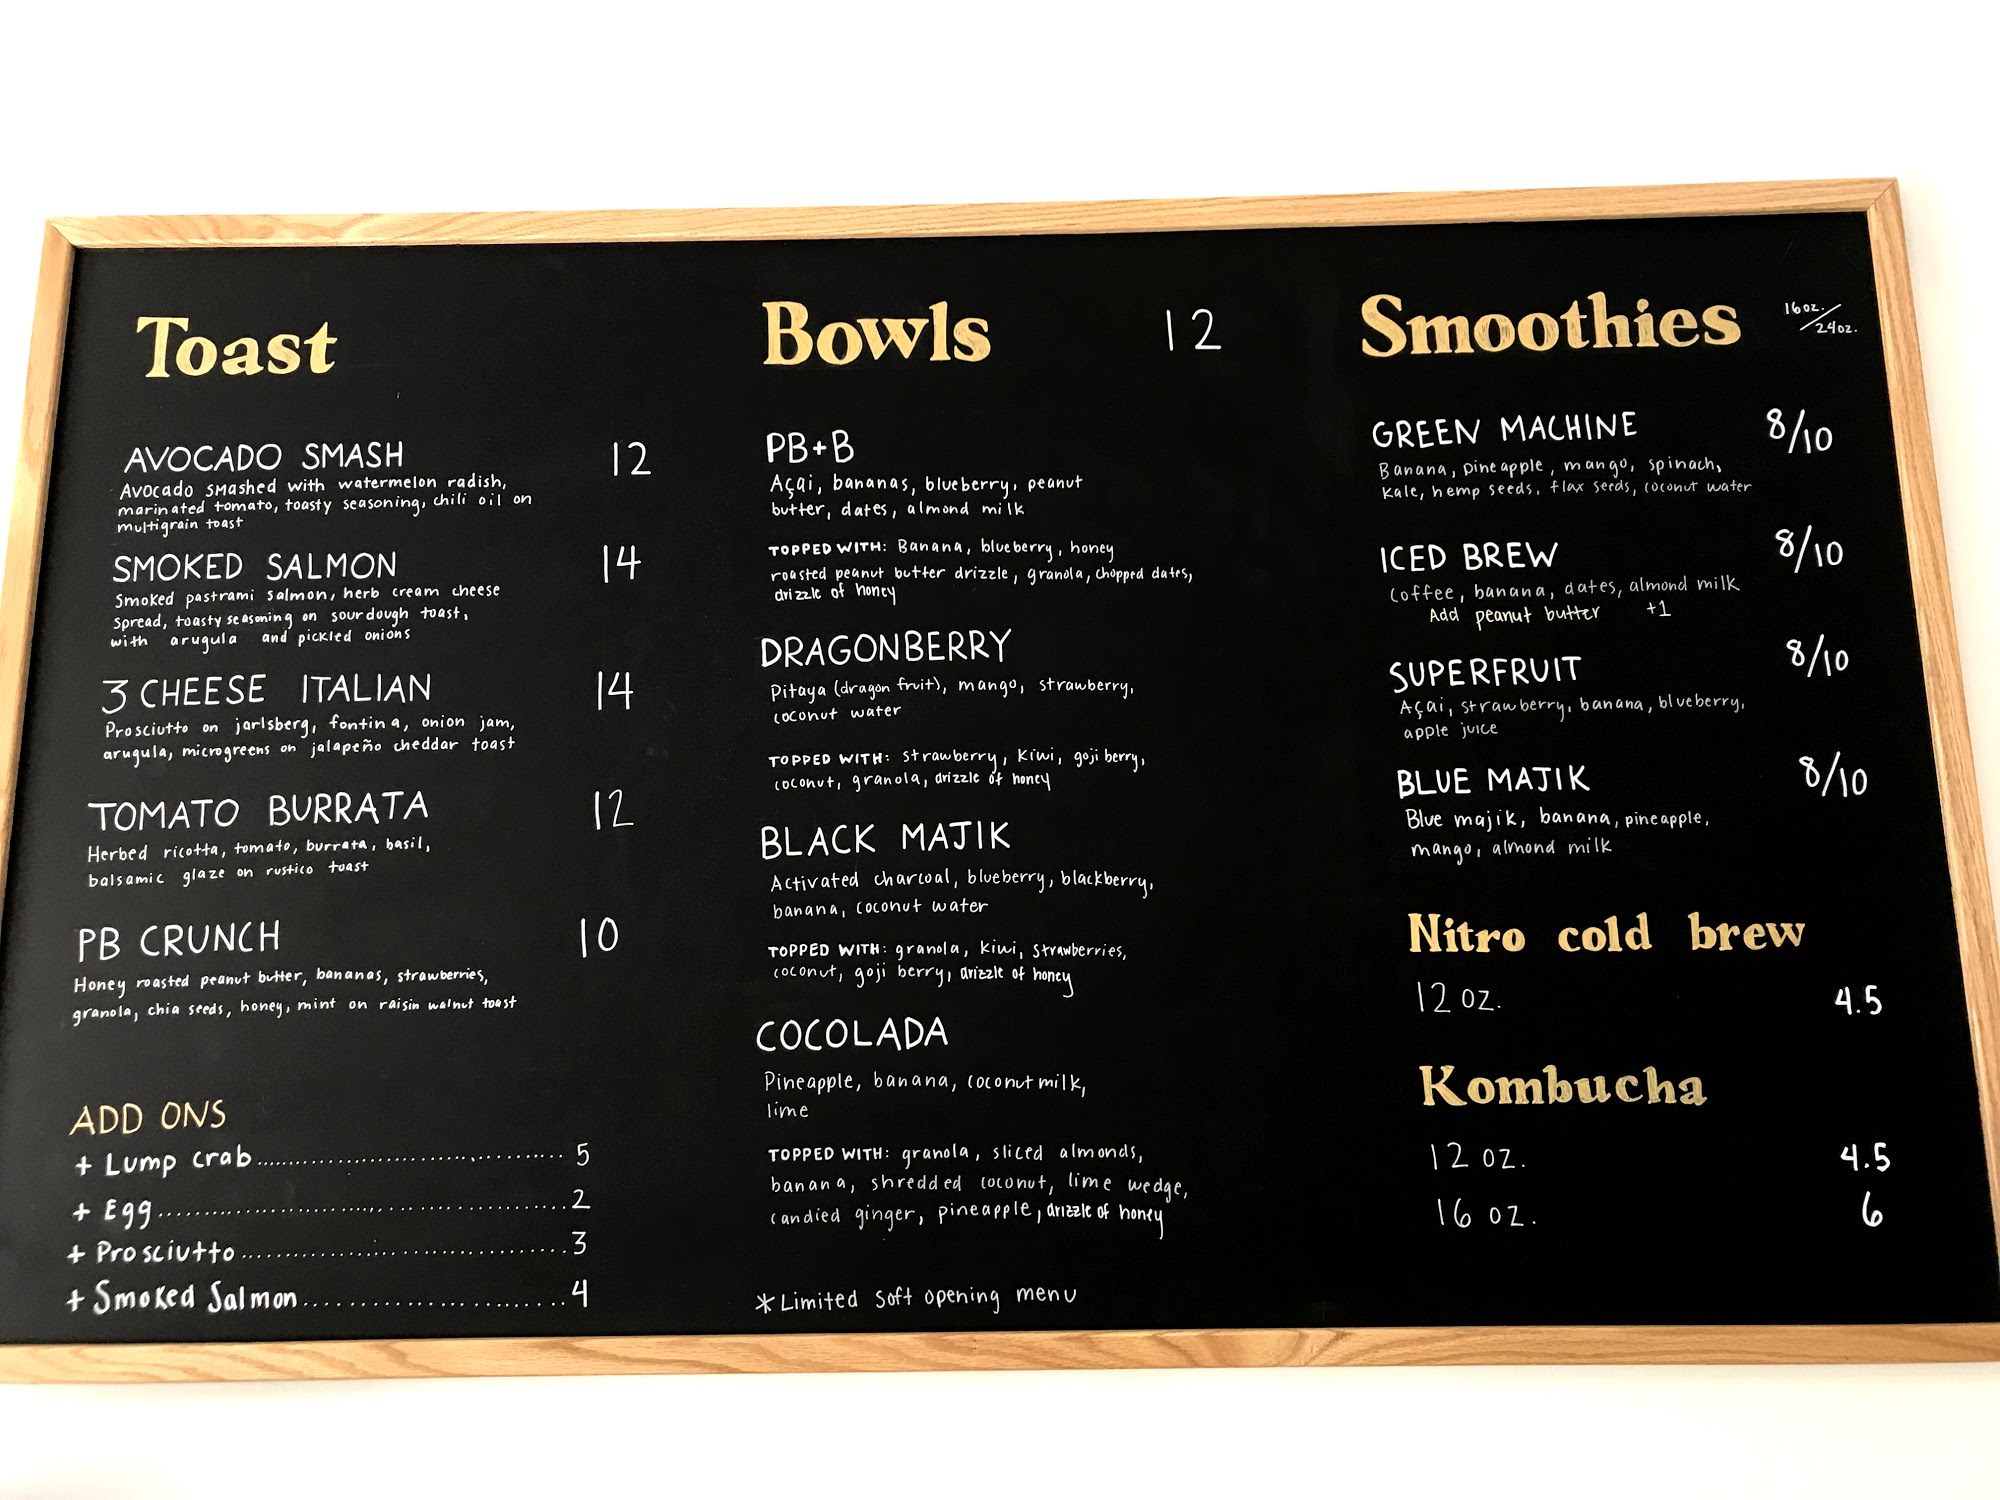 Toast
AVOCADO SMASH 12
Avocado smashed with watermelon radish,
marinated tomato, toasty seasoning, chili oil on
multigrain toast
SMOKED SALMON 14
Smoked pastrami salmon, herb cream cheese
Spread, toasty seasoning on sourdough toast,
with arugula and pickled onions
3 CHEESE ITALIAN 14
Prosciutto on jarlsberg, fontina, onion jam,
arugula, microgreens on jalapeño cheddar toast
TOMATO BURRATA 12
Herbed ricotta, tomato, burrata, basil,
balsamic glaze on rustico toast
PB CRUNCH 10
Honey roasted peanut butter, bananas, strawberries,
granola, chia seeds, honey, mint on raisin walnut toast
ADD ONS
+ Lump crab 5
+ Egg 2
+ Prosciutto 3
+ Smoked Salmon 4
Bowls 12
PB+B
Açai, bananas, blueberry, peanut
butter, dates, almond milk
TOPPED WITH: Banana, blueberry, honey
roasted peanut butter drizzle, granola, chopped dates,
drizzle of honey
DRAGONBERRY
Pitaya (dragon fruit), mango, strawberry,
coconut water
TOPPED WITH: strawberry, kiwi, goji berry,
coconut, granola, drizzle of honey
BLACK MAJIK
Activated charcoal, blueberry, blackberry,
banana, coconut water
TOPPED WITH: granola, kiwi, strawberries,
coconut, goji berry, drizzle of honey
COCOLADA
Pineapple, banana, coconut milk,
lime
TOPPED WITH: granola, sliced almonds,
banana, shredded coconut, lime wedge,
candied ginger, pineapple, drizzle of honey
*Limited soft opening menu
Smoothies 16oz./24oz.
GREEN MACHINE 8/10
Banana, pineapple, mango, spinach,
kale, hemp seeds, flax seeds, coconut water
ICED BREW 8/10
Coffee, banana, dates, almond milk
Add peanut butter +1
SUPERFRUIT 8/10
Açai, strawberry, banana, blueberry,
apple juice
BLUE MAJIK 8/10
Blue majik, banana, pineapple,
mango, almond milk
Nitro cold brew
12 oz. 4.5
Kombucha
12 oz. 4.5
16 oz. 6